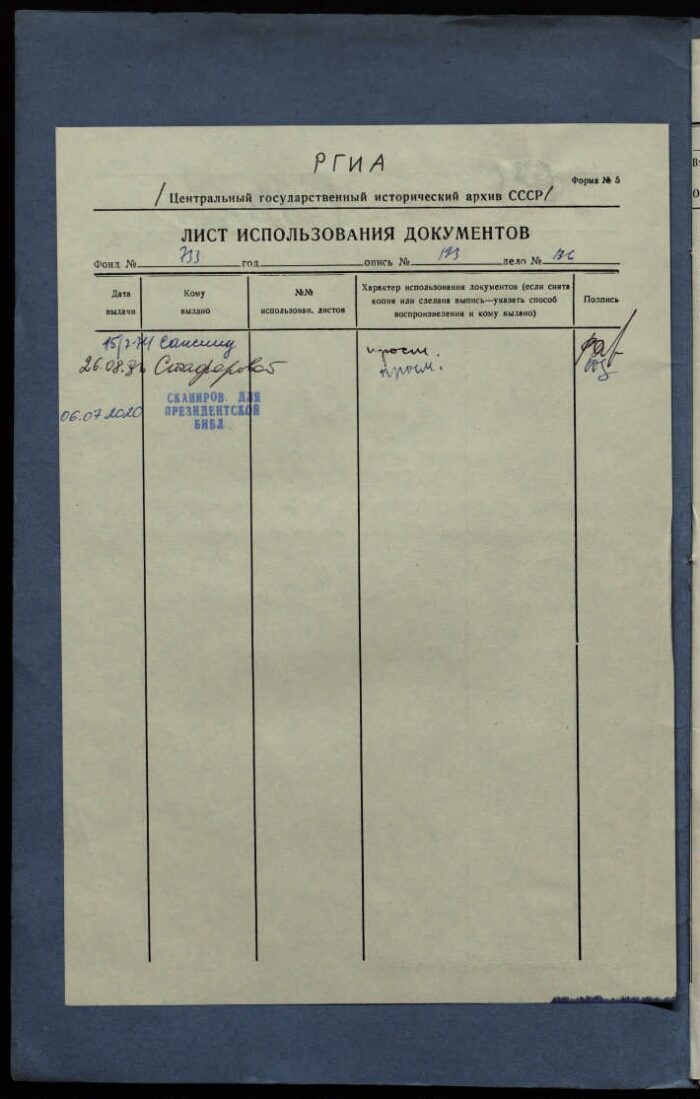 РГИА
Форма № 5
/Центральный государственный исторический архив СССР/
ЛИСТ ИСПОЛЬЗОВАНИЯ ДОКУМЕНТОВ
Фонд № 733 год опись № 193 дело № 176
Дата выдачи
Кому выдано
№№ использован. листов
Характер использования документов (если снята
копия или сделана выпись—указать способ
воспроизведения и кому выдано)
Подпись
просм.
26.08. просм.
06.07.2020 СКАНИРОВ. ДЛЯ
ПРЕЗИДЕНТСКОЙ
БИБЛ